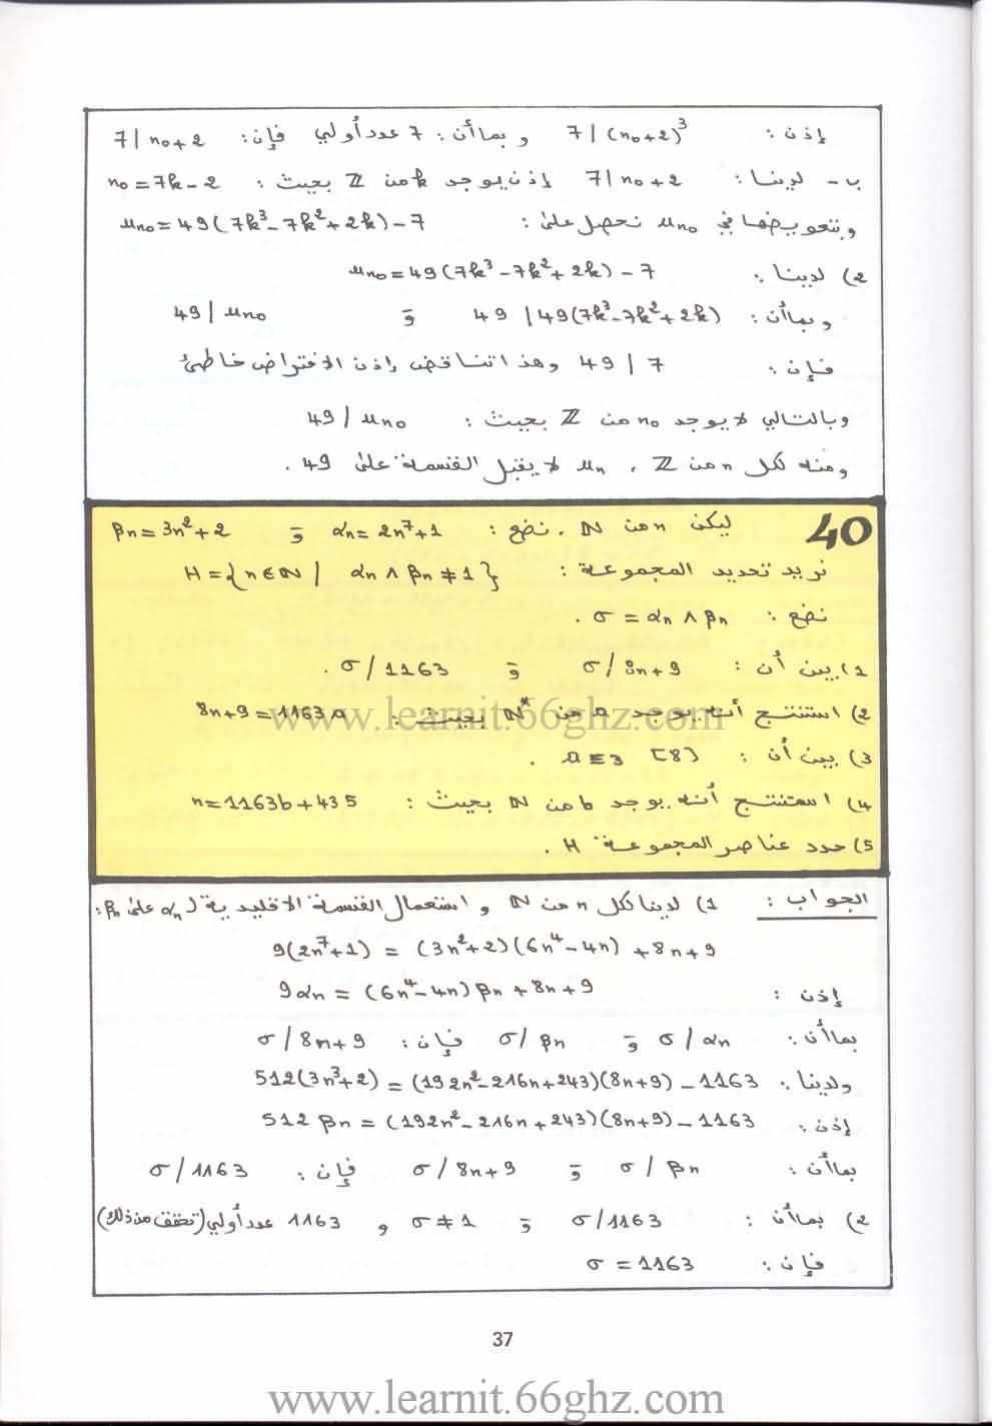 إذن : 7 | (n₀+2)³ و بما أن : 7 عدد أولي فإن : 7 | n₀+2
ب - لدينا : 7 | n₀+2 إذن يوجد k من ℤ بحيث : n₀ = 7k-2
وبتعويضها في un₀ نحصل على : un₀ = 49(7k³-7k²+2k)-7
2) لدينا : un₀ = 49(7k³-7k²+2k)-7
وبما أن : 49 | 49(7k³-7k²+2k) و 49 | un₀
فإن : 49 | 7 وهذا تناقض إذن الافتراض خاطئ
وبالتالي لا يوجد n₀ من ℤ بحيث : 49 / un₀
ومنه لكل n من ℤ ، un لا يقبل القسمة على 49 .
40 ليكن n من ℕ . نضع : αn = 2n⁷+1 و βn = 3n²+2
نريد تحديد المجموعة : H = {n∈ℕ | αn ∧ βn ≠ 1}
نضع : σ = αn ∧ βn .
1) بين أن : σ / 8n+9 و σ / 1163 .
2) استنتج أنه يوجد a من ℕ* بحيث : 8n+9 = 1163a
3) بين أن : a ≡ 3 [8] .
4) استنتج أنه يوجد b من ℕ بحيث : n = 1163b+435
5) حدد عناصر المجموعة H .
الجواب : 1) لدينا لكل n من ℕ و استعمال القسمة الاقليدية ل αn على βn :
9(2n⁷+1) = (3n²+2)(6n⁴-4n) + 8n+9
إذن : 9αn = (6n⁴-4n)βn + 8n+9
بما أن : σ / αn و σ / βn فإن : σ / 8n+9
ولدينا : 512(3n³+2) = (192n²-216n+243)(8n+9) - 1163
إذن : 512 βn = (192n²-216n+243)(8n+9) - 1163
بما أن : σ / βn و σ / 8n+9 فإن : σ / 1163
2) بما أن : σ / 1163 و σ ≠ 1 و 1163 عدد أولي (تحقق من ذلك)
فإن : σ = 1163
37
www.learnit.66ghz.com
www.learnit.66ghz.com